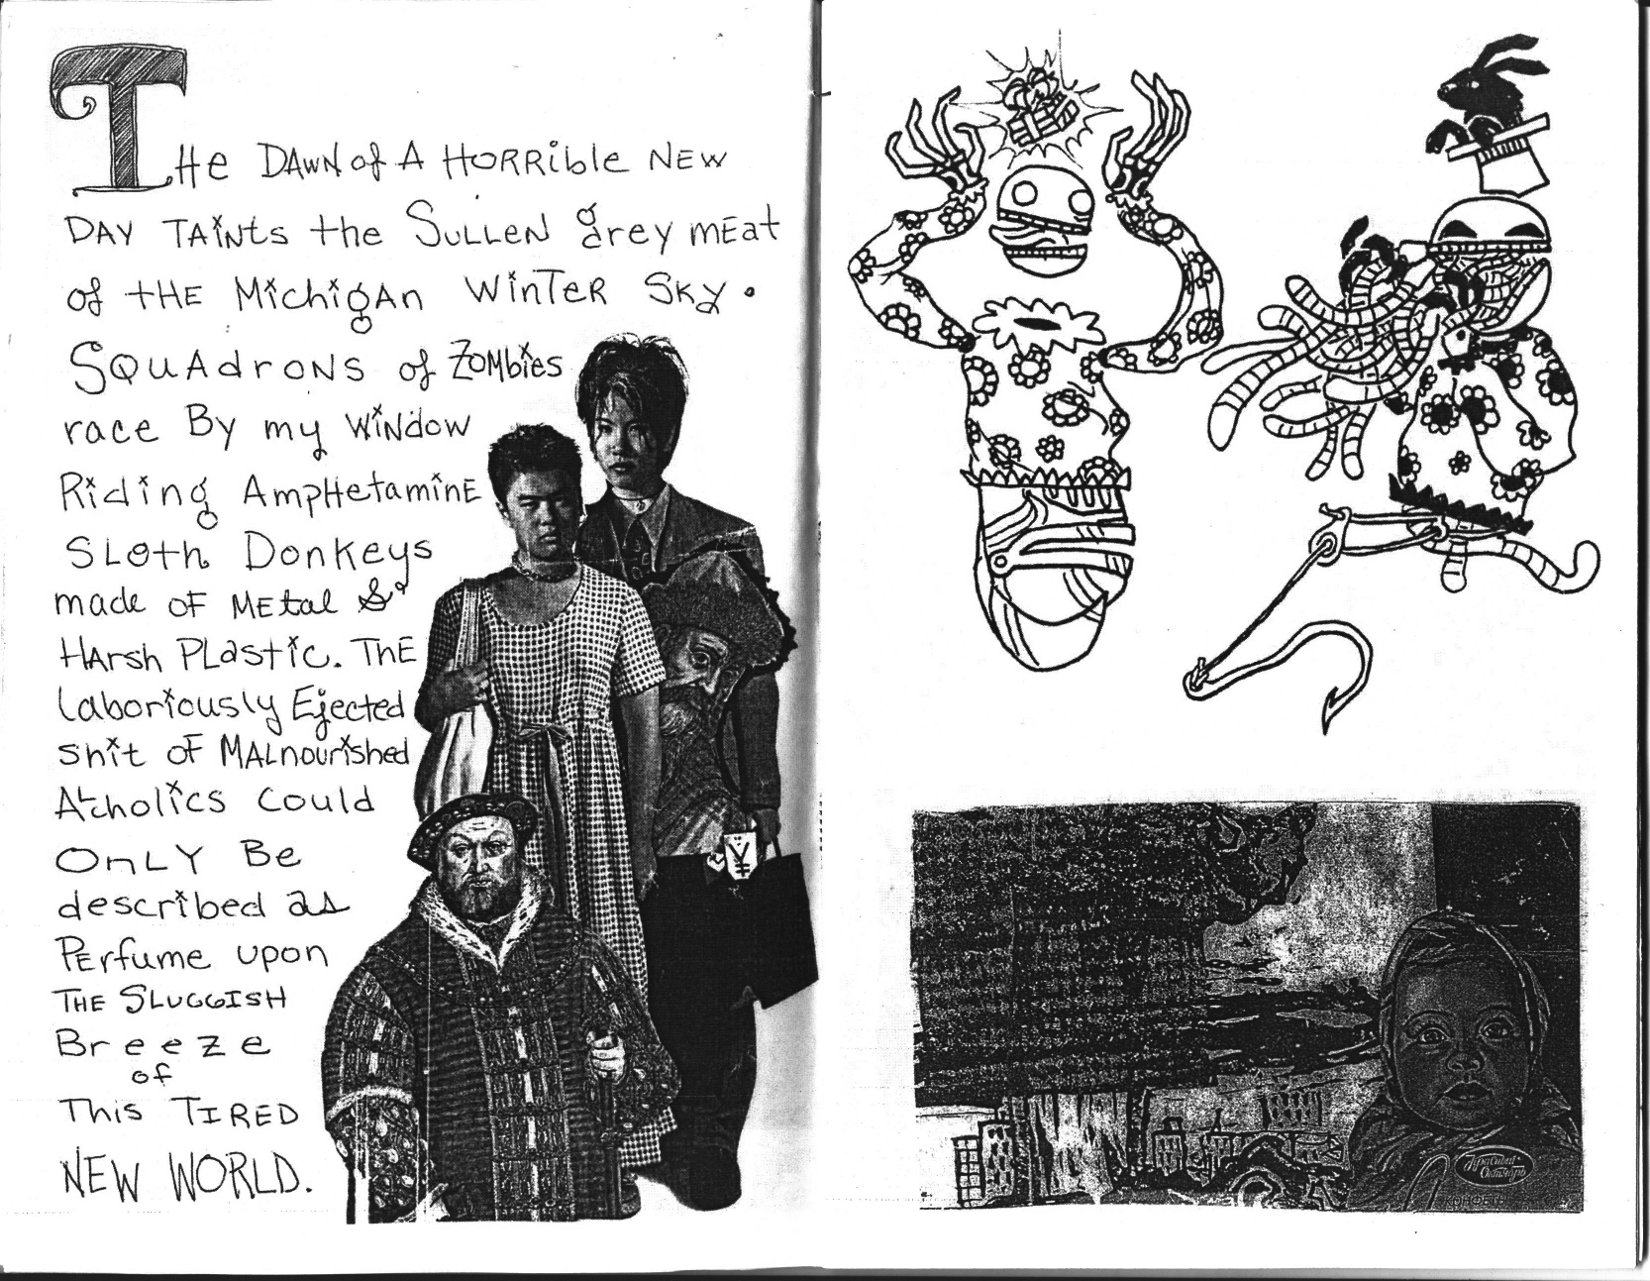 THe DAWN of A HORRible NEW
DAY TAiNts the SULLEN grey mEat
of tHE MichigAn WinTER Sky.
SQUAdroNS of ZOMbies
race By my WiNdow
Riding AmpHetaminE
SLoth Donkeys
made oF MEtal &
HArsh PLastic. ThE
Laboriously Ejected
shit oF MALnourished
ALcholics could
OnLY Be
described as
PErfume upon
THE SLUGGISH
Breeze
of
This TIRED
NEW WORLD.
¥
Красный
Октябрь